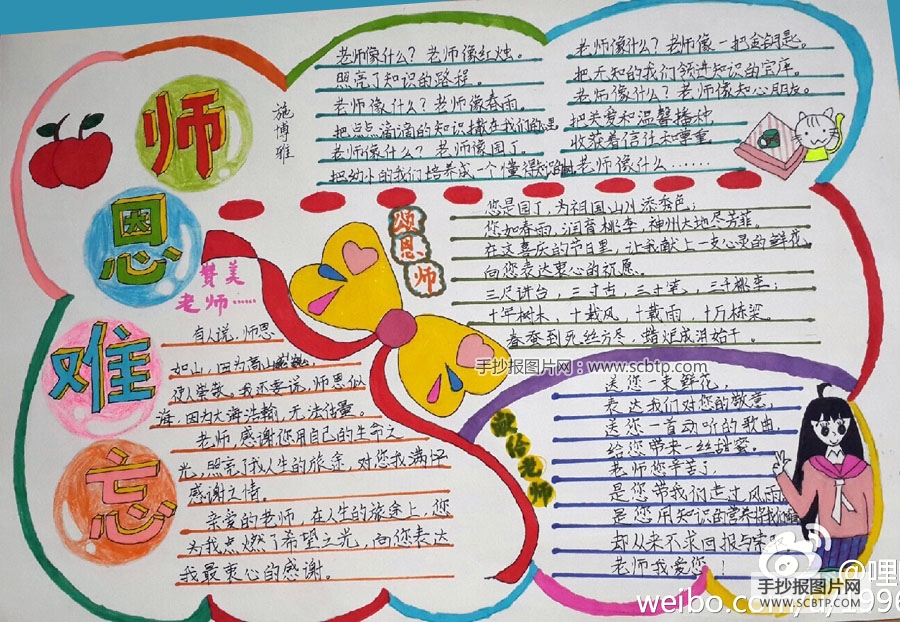 师
恩
难
忘
施博雅
老师像什么？老师像红烛。
照亮了知识的路程。
老师像什么？老师像春雨。
把点点滴滴的知识撒在我们的
老师像什么？老师像园丁。
把幼小的我们培养成一个懂得
老师像什么？老师像一把金钥匙。
把无知的我们领进知识的宫库。
老师像什么？老师像知心朋友。
把关爱和温馨播种
收获着信任和尊重
老师像什么……
颂
恩
师
您是园丁，为祖国山川添秀色；
您如春雨，润育桃李，神州大地尽芳菲。
在这喜庆的节日里，让我献上一支心灵的鲜花
向您表达衷心的祝愿。
三尺讲台，三寸舌，三寸笔，三千桃李；
十年树木，十载风，十载雨，十万栋梁。
春蚕到死丝方尽，蜡炬成泪始干。
赞美
老师……
有人说，师恩
如山，因为高山巍巍，
使人崇敬。我还要说，师恩似
海，因为大海浩瀚，无法估量。
老师，感谢您用自己的生命之
光，照亮了我人生的旅途，对您我满怀
感谢之情。
亲爱的老师，在人生的旅途上，您
为我点燃了希望之光，向您表达
我最衷心的感谢。
手抄报图片网：www.scbtp.com
老
师
送您一束鲜花，
表达我们对您的敬意，
送您一首动听的歌曲，
给您带来一丝甜蜜。
老师您辛苦了，
是您带我们走过风雨
是您用知识的营养将我们
却从来不求回报与索
老师我爱您！
手抄报图片网
WWW.SCBTP.COM
@哩
weibo.com/